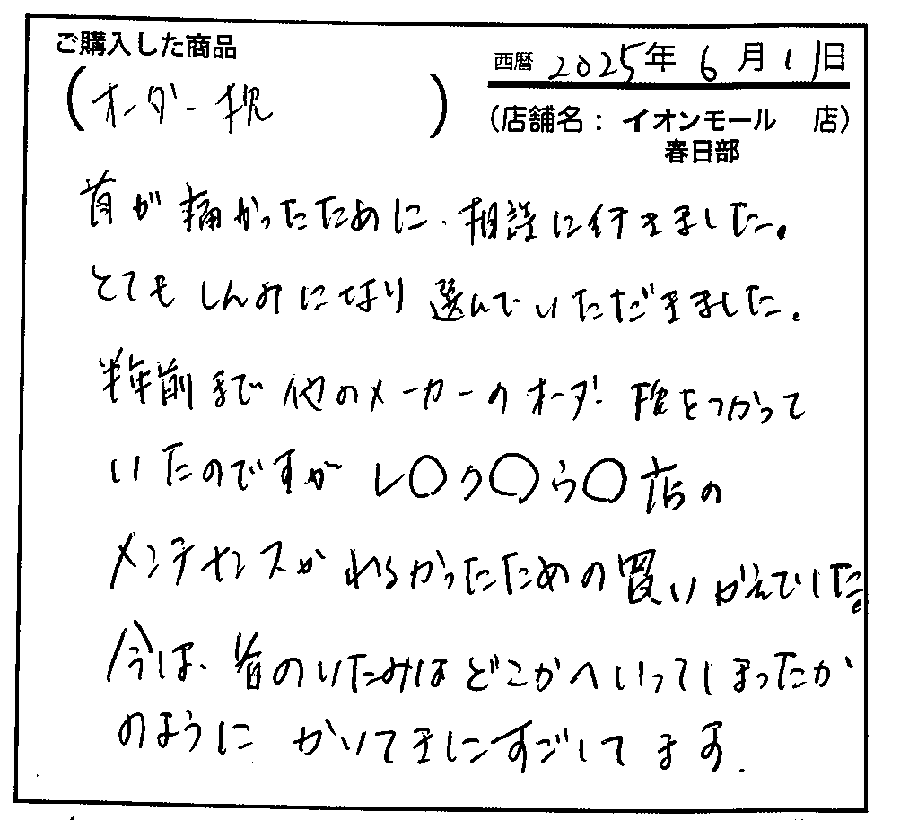 ご購入した商品
西暦 2025年 6月 11日
(オーダー枕)
(店舗名: イオンモール 店)
春日部
首が痛かったために、相談に行きました。
とてもしんみになり選んでいただきました。
半年前まで他のメーカーのオーダー枕をつかって
いたのですが レ〇ク〇ら〇店の
メンテナンスがわるかったための買いかえでした。
今は、首のいたみはどこかへいってしまったか
のように かいてきにすごしてます.